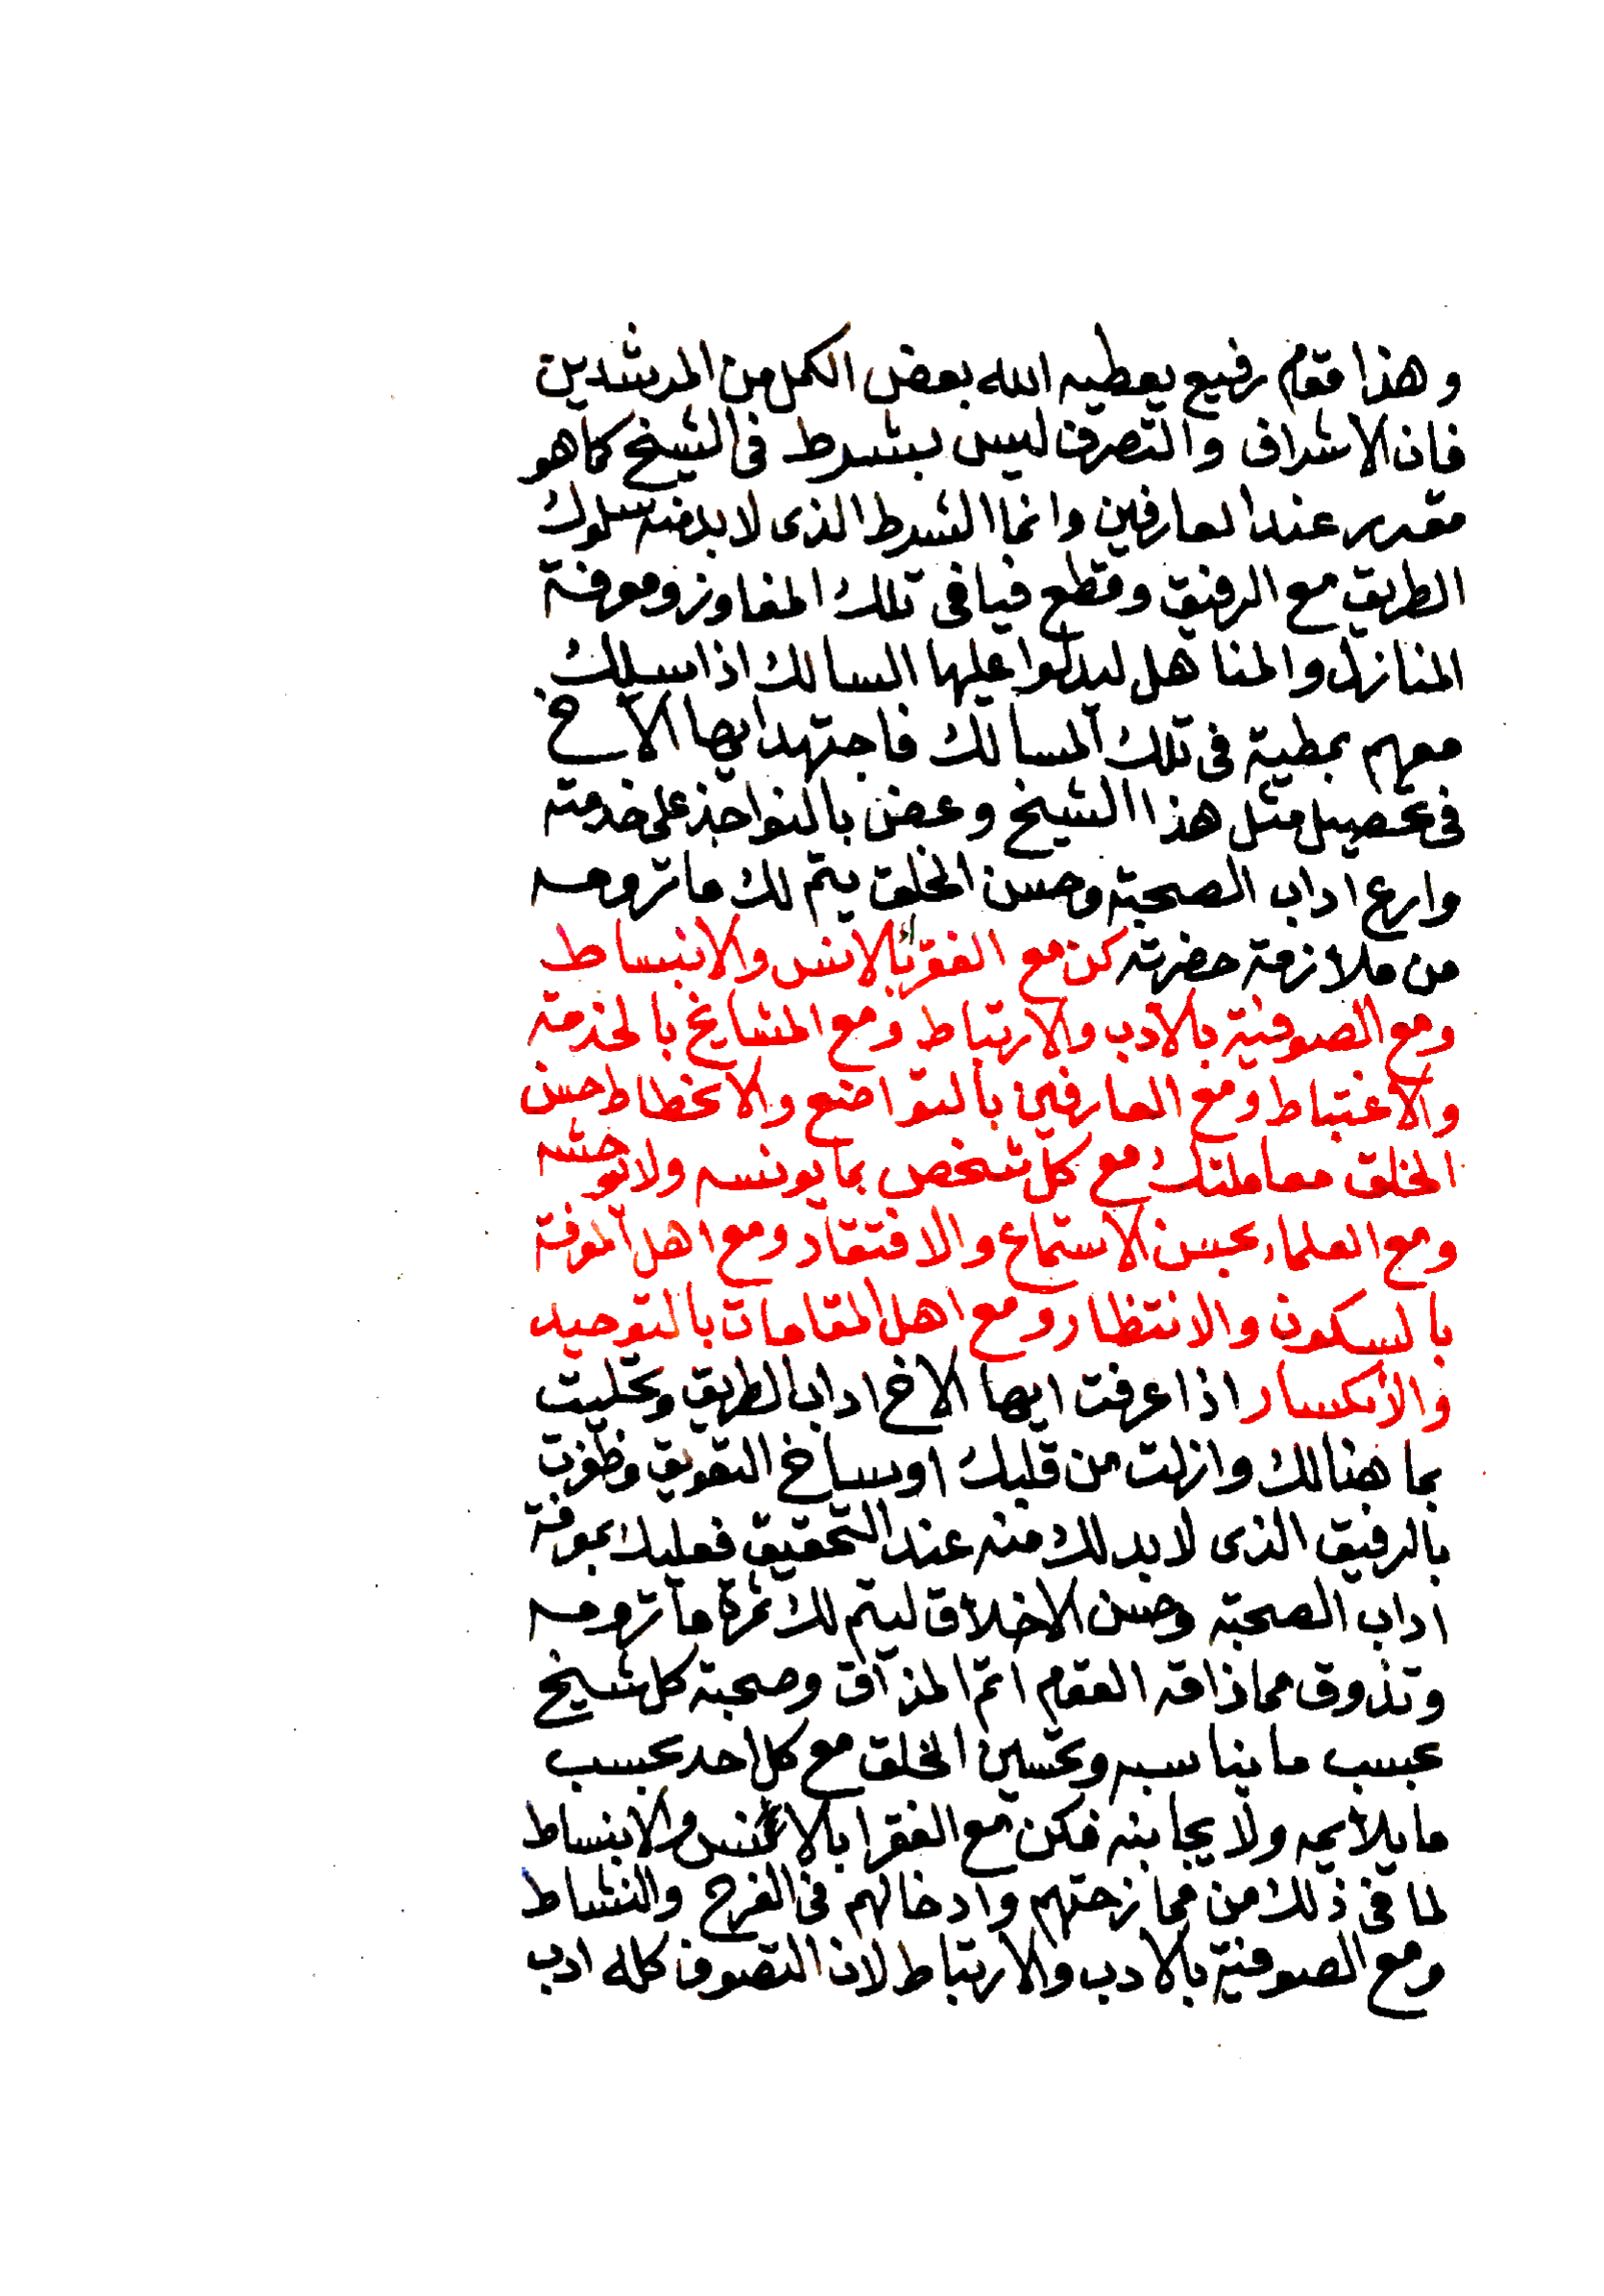 وهذا مقام رفيع يعطيه الله بعض الكمل من المرشدين
فان الاشراف والتصرف ليس بشرط في الشيخ كما هو
مقرر عند العارفين وانما الشرط الذى لا بد منه سلوك
الطريق مع الرفيق وقطع فيافى تلك المفاوز ومعرفة
المنازل والمناهل ليدلوا عليها السالك اذا سلك
معهم بمطية فى تلك المسالك فاجتهد ايها الاخ
فى تحصيل مثل هذا الشيخ وعض بالنواجذ على خدمته
وارع اداب الصحبة وحسن الخلق يتم لك ما ترومه
من ملازمة حضرته كن مع الفقرا بالانس والانبساط
ومع الصوفية بالادب والارتباط ومع المشايخ بالخدمة
والاغتباط ومع العارفين بالتواضع والانحطاط حسن
الخلق معاملتك مع كل شخص بما يونسه ولا يوحشه
ومع العلماء بحسن الاستماع والافتقاد ومع اهل المعرفة
بالسكون والانتظار ومع اهل المقامات بالتوحيد
والانكسار اذا عرفت ايها الاخ اداب الطريق وتحليت
بما هنالك وازلت من قلبك اوساخ التعويق وظفرت
بالرفيق الذى لا بد لك منه عند التحقيق فعليك بمعرفة
اداب الصحبة وحسن الاخلاق ليتم لك ثمرة ما ترومه
وتذوق مما ذاقه القوم اتم المذاق وصحبة كل شيخ
بحسب ما يناسبه وتحسين الخلق مع كل احد بحسب
ما يلايمه ولا يجانبه فكن مع الفقرا بالانس والانبساط
لما فى ذلك من ممازحتهم وادخالهم فى الفرح والنشاط
ومع الصوفية بالادب والارتباط لان التصوف كله ادب